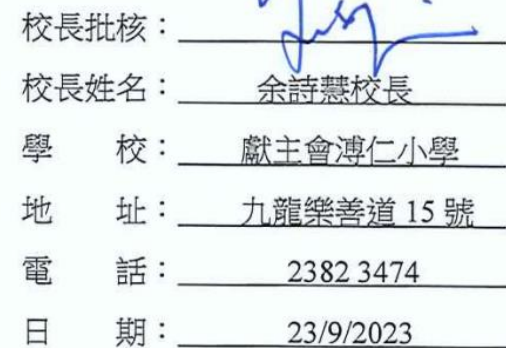 校長批核：
校長姓名：余詩慧校長
學 校：獻主會溥仁小學
地 址：九龍樂善道 15 號
電 話：2382 3474
日 期：23/9/2023